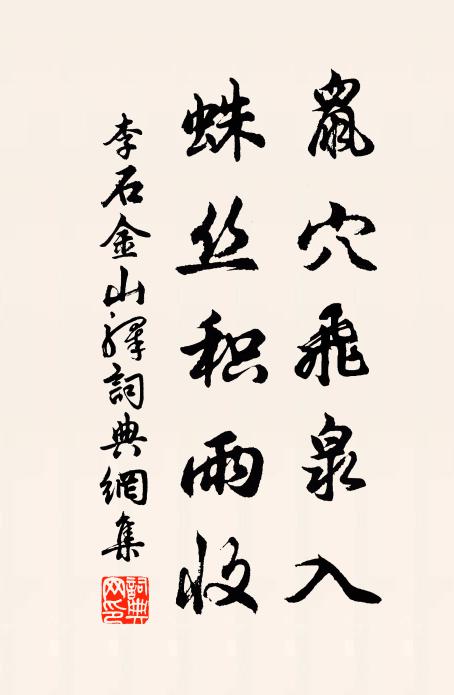 鼠穴飛泉入
蛛丝积雨收
李石金山驛詞典網集
詞典网印